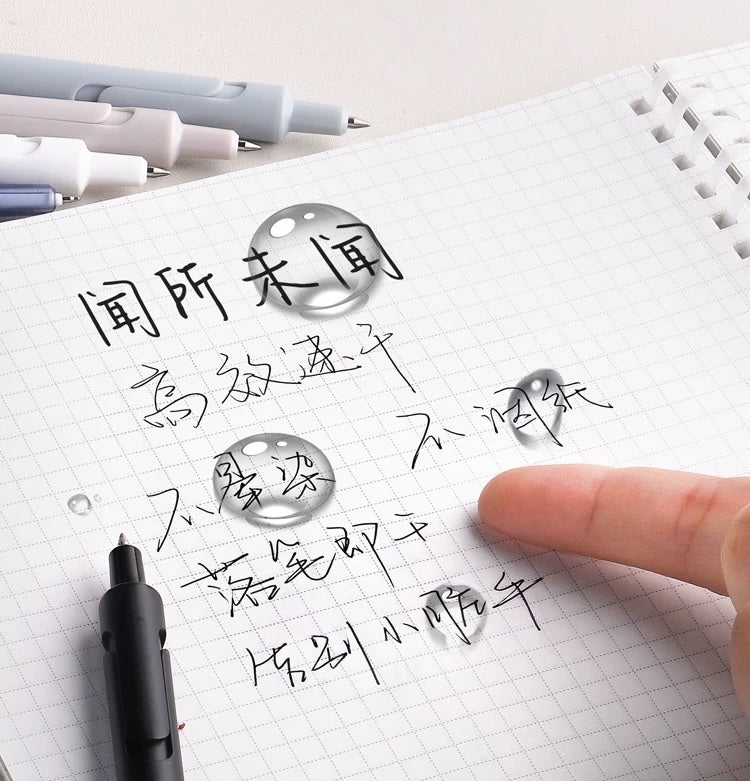 闻所未闻
高效速干
不洇纸
不晕染
落笔即干
告别小脏手